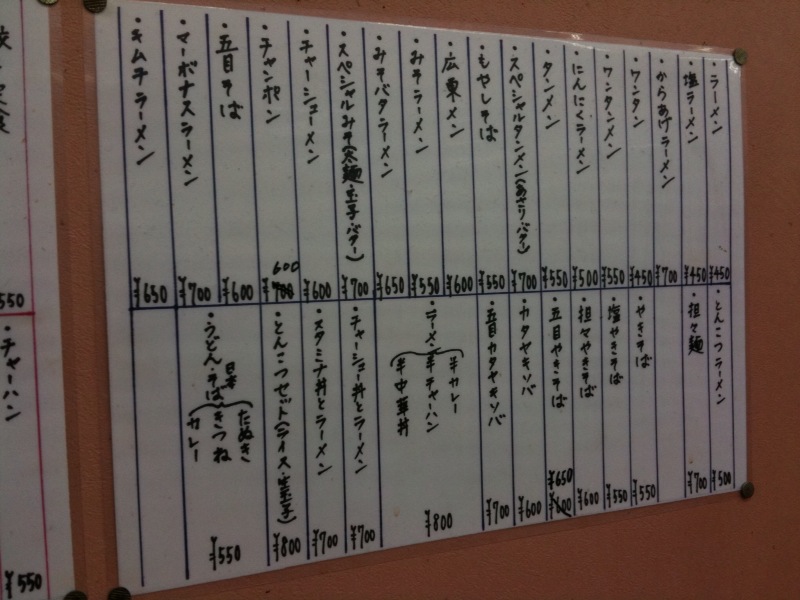 ・ラーメン ¥450
・塩ラーメン ¥450
・からあげラーメン ¥700
・ワンタン ¥450
・ワンタンメン ¥550
・にんにくラーメン ¥500
・タンメン ¥550
・スペシャルタンメン(あさり・バター) ¥700
・もやしそば ¥550
・広東メン ¥600
・みそラーメン ¥550
・みそバタラーメン ¥650
・スペシャルみそ(太麺・玉子・バター) ¥700
・チャーシューメン ¥600
・チャンポン 600 ¥700
・五目そば ¥600
・マーボナスラーメン ¥700
・キムチラーメン ¥650
・とんこつラーメン ¥500
・担々麺 ¥700
・やきそば ¥550
・塩やきそば ¥550
・担々やきそば ¥600
・五目やきそば ¥650 ¥600
・カタヤキソバ ¥600
・五目カタヤキソバ ¥700
・ラーメン
半カレー
半チャーハン
半中華丼
¥800
・チャーシュー丼とラーメン ¥700
・スタミナ丼とラーメン ¥700
・とんこつセット(ライス・生玉子) ¥800
・うどん・日本そば
たぬき
きつね
カレー
¥550
定食
550
・チャーハン
¥550